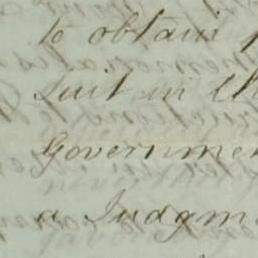 to obtain
suit in Ch
Governmen
a Judgm